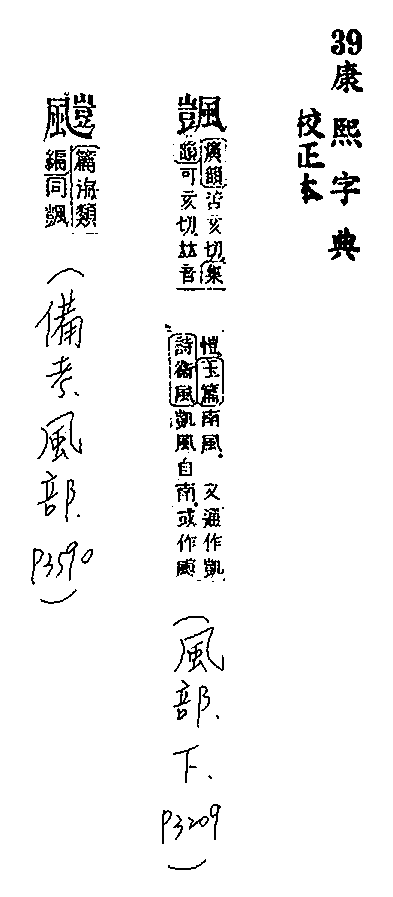 39康熙字典
校正本
颽
廣韻苦亥切集
韻可亥切𠀤音
愷玉篇南風。又通作凱
詩衞風凱風自南。或作
(風部.下.P3209)
篇海類
編同颽
(備考.風部.P3590)